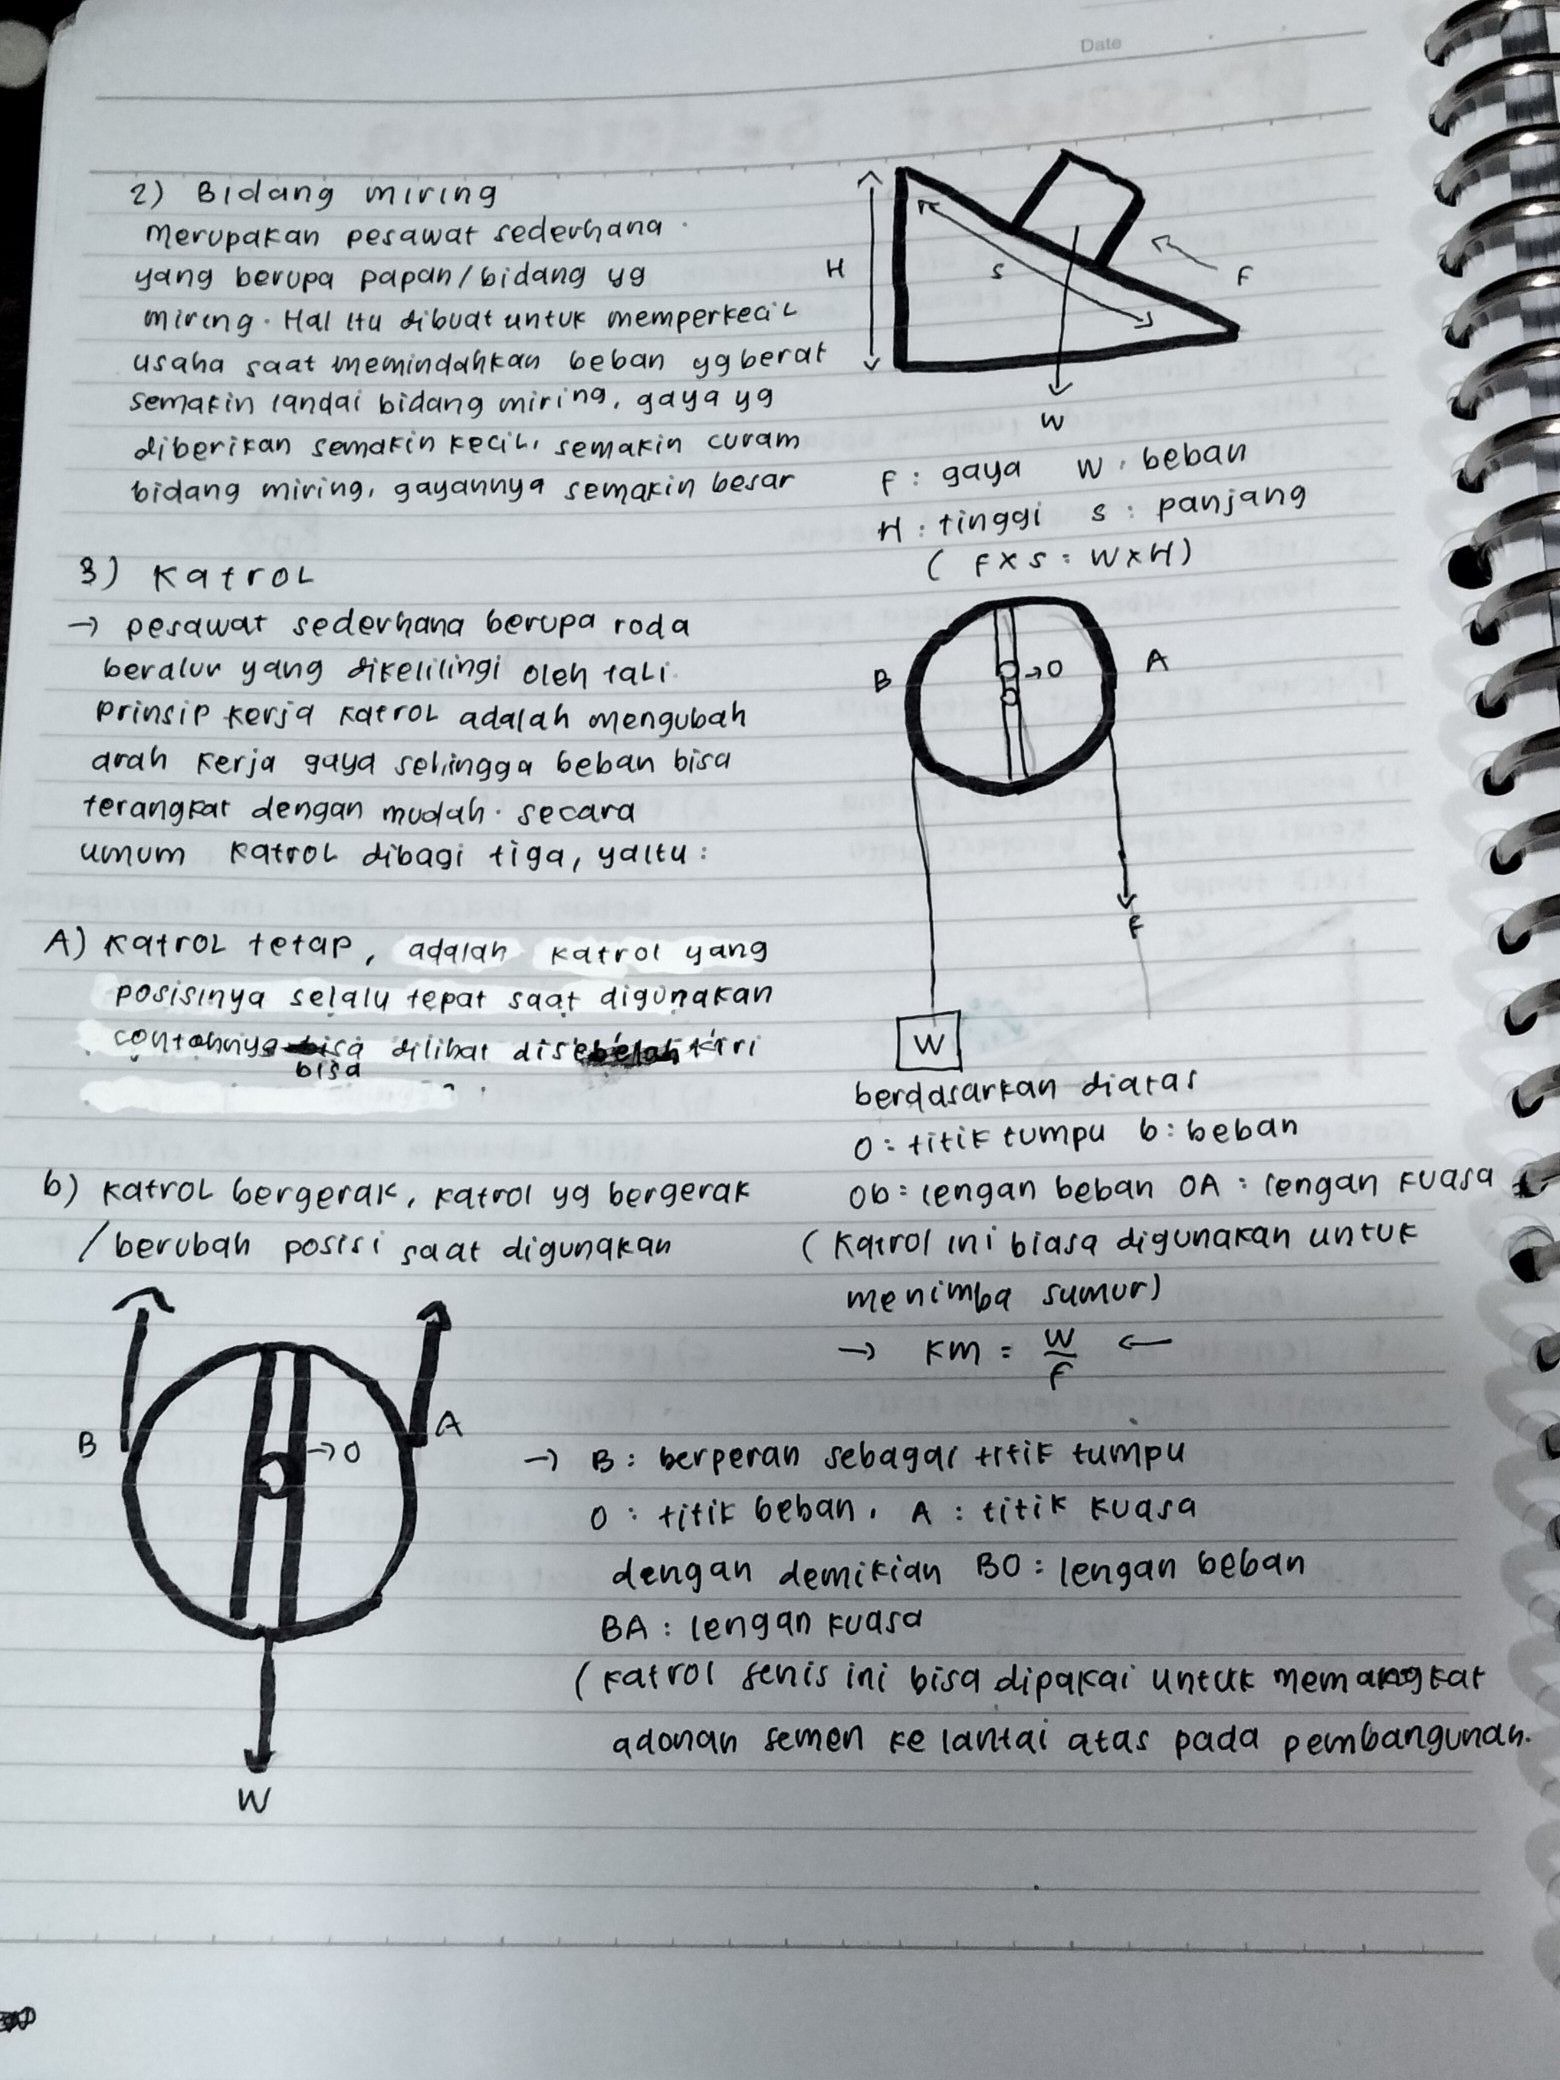 Date
2) Bidang miring
merupakan pesawat sederhana
yang berupa papan/bidang yg
miring. Hal itu dibuat untuk memperkecil
usaha saat memindahkan beban yg berat
semakin landai bidang miring, gaya yg
diberikan semakin kecil, semakin curam
bidang miring, gayannya semakin besar
H
S
F
W
F : gaya W : beban
H : tinggi S : panjang
( F x S = W x H )
3) Katrol
→ pesawat sederhana berupa roda
beralur yang dikelilingi oleh tali.
Prinsip kerja katrol adalah mengubah
arah kerja gaya sehingga beban bisa
terangkat dengan mudah. secara
umum katrol dibagi tiga, yaitu :
B
→ O
A
F
W
A) Katrol tetap, adalah katrol yang
posisinya selalu tepat saat digunakan
contohnya bisa dilihat disebelah kiri
berdasarkan diatas
O : titik tumpu b : beban
Ob = lengan beban OA : lengan kuasa
( Katrol ini biasa digunakan untuk
menimba sumur )
→ KM = W/F ←
b) Katrol bergerak, katrol yg bergerak
/ berubah posisi saat digunakan
B
→ O
A
W
→ B : berperan sebagai titik tumpu
O : titik beban, A : titik kuasa
dengan demikian BO : lengan beban
BA : lengan kuasa
( Katrol jenis ini bisa dipakai untuk memangkat
adonan semen ke lantai atas pada pembangunan.